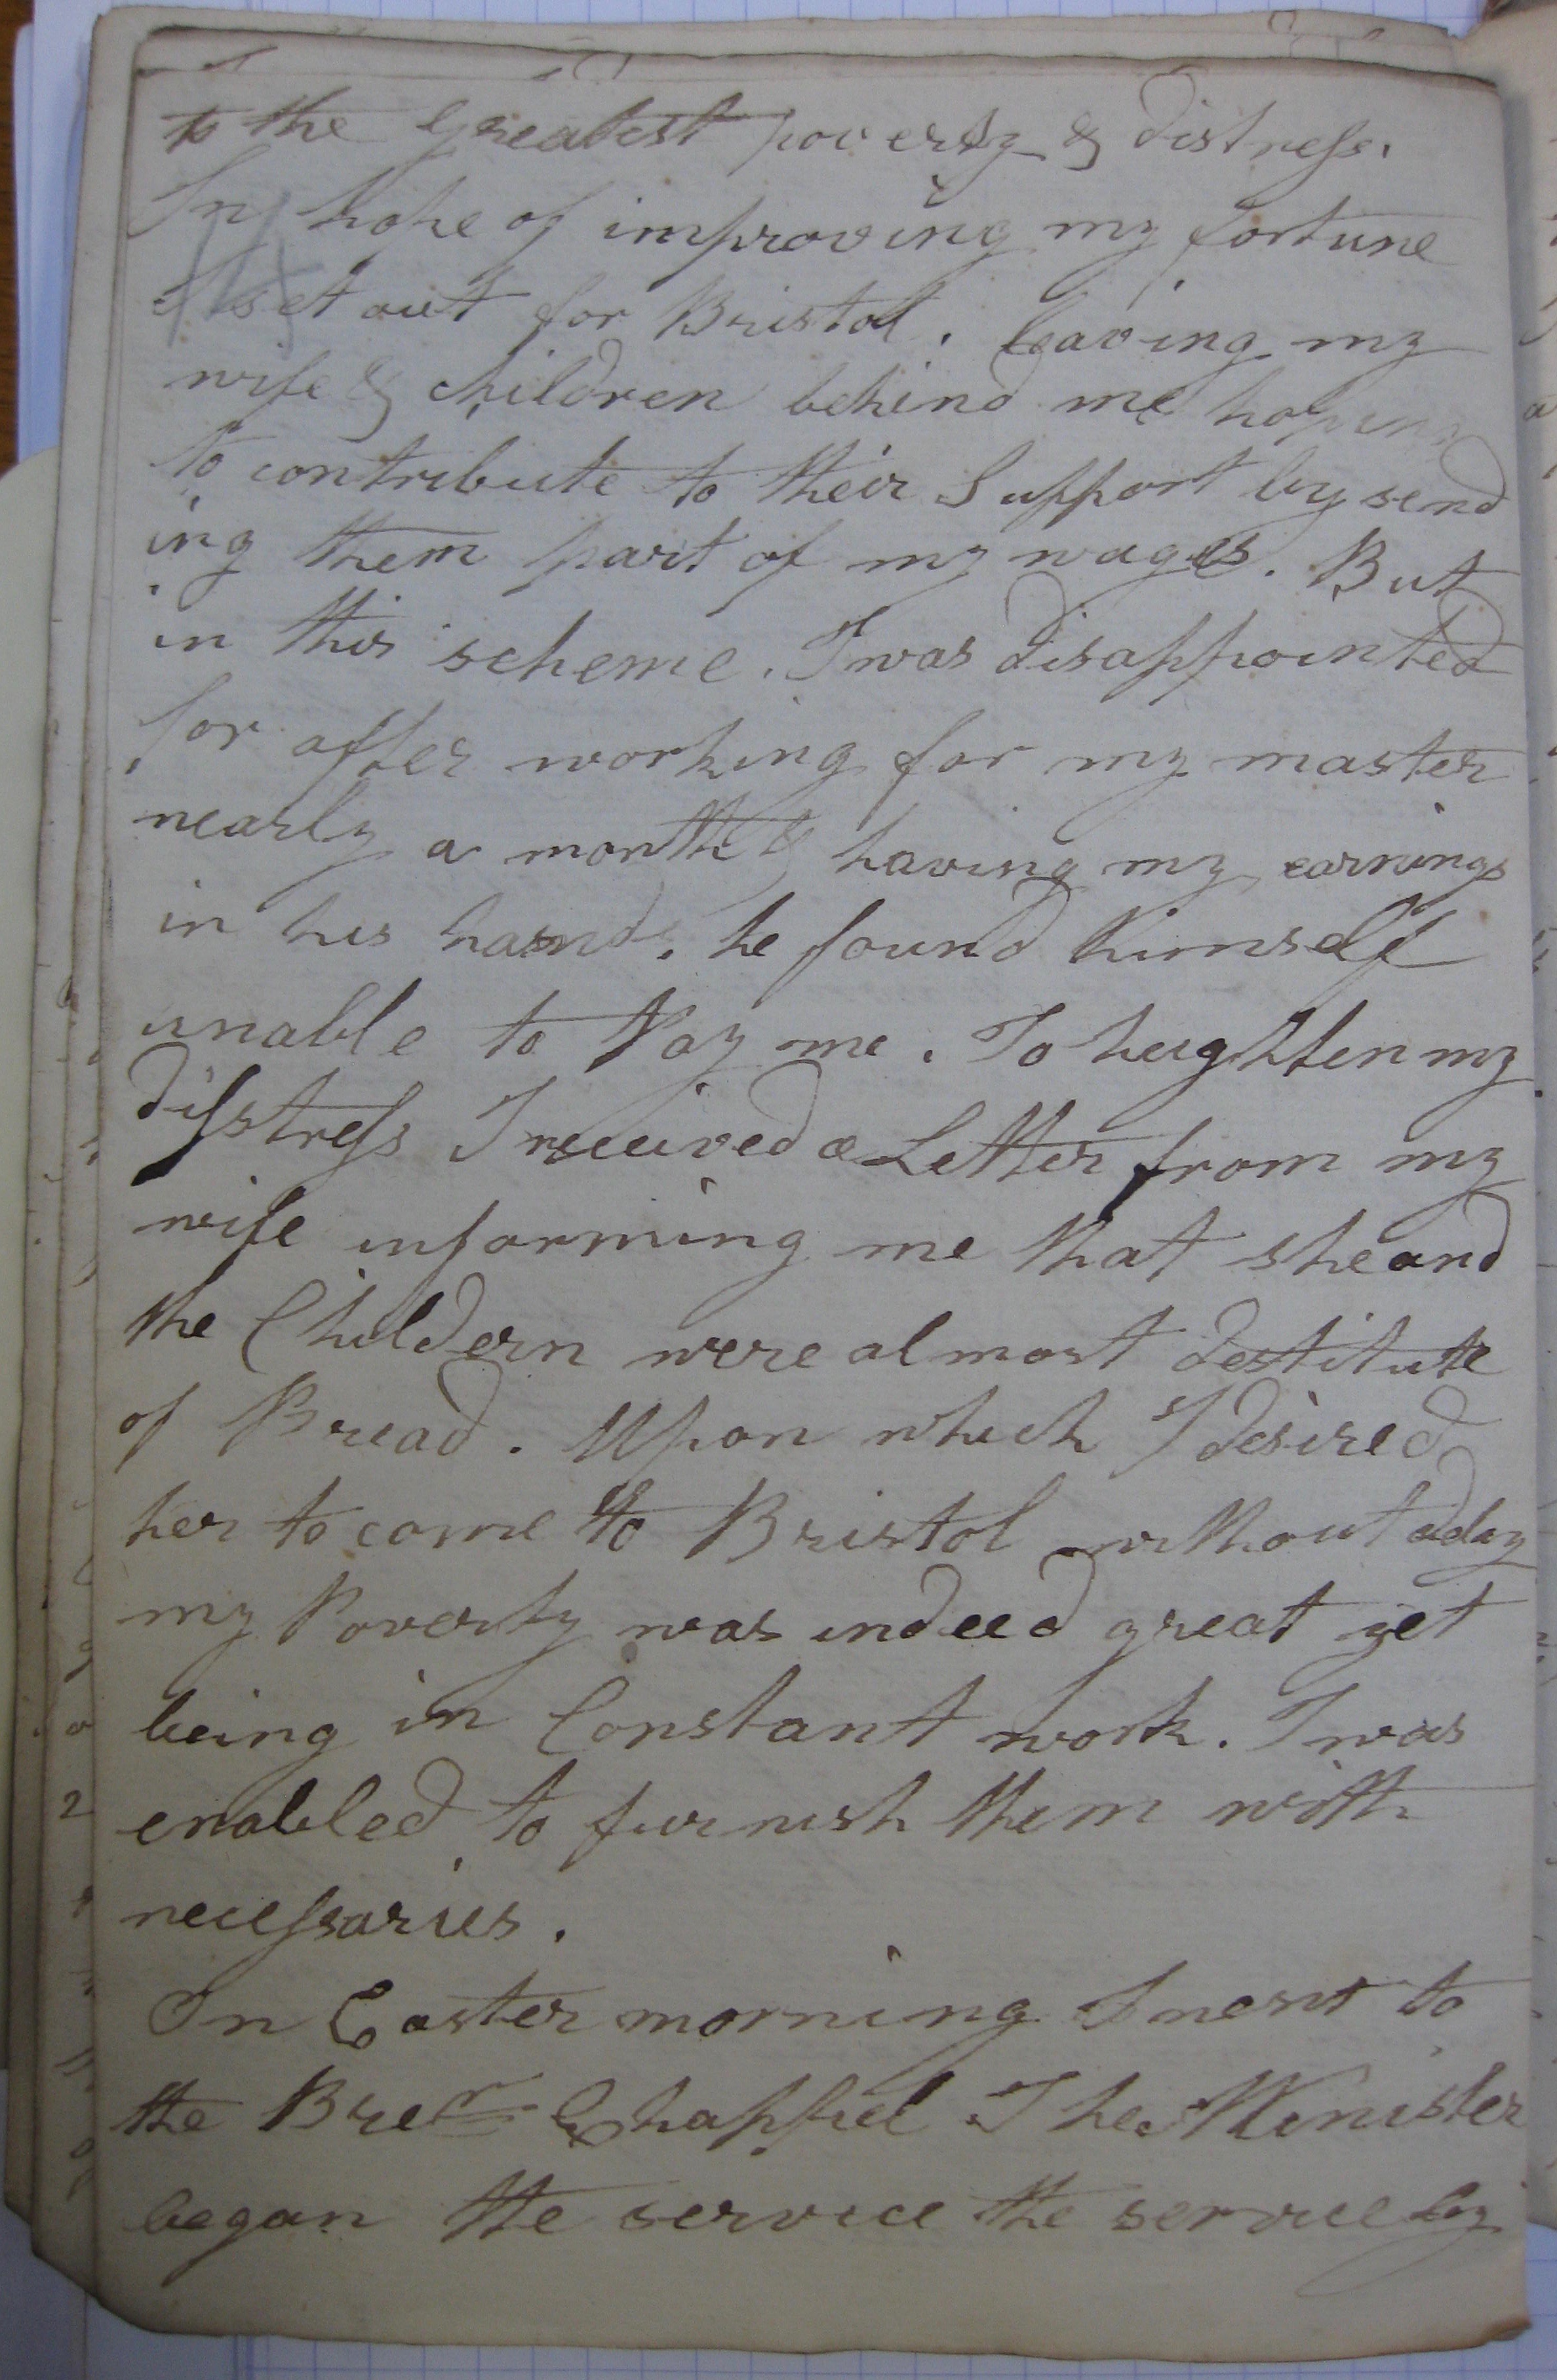 to the Greatest poverty & distress.
In hope of improving my fortune
I set out for Bristol. leaving my
wife & children behind me hoping
to contribute to their Support by send
ing them part of my wages. But
in this scheme. I was disappointed
for after working for my master
nearly a month & having my earnings
in his hands. he found himself
unable to Pay me. To heighten my
disstress I received a Letter from my
wife informing me that she and
the Childern were almost destitute
of Bread. Upon which I desired
her to come to Bristol without
my Poverty was indeed great yet
being in Constant work. I was
enabled to furnish them with
necessaries.
On Easter morning I went to
the Bre^n Chappel The Minister
began the service the service by